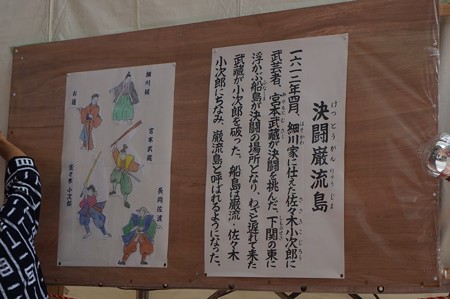 決闘巌流島
けっとうがんりゅうじま
一六一二年四月、細川家に仕えた佐々木小次郎に
武芸者、宮本武蔵が決闘を挑んだ。下関の東に
浮かぶ船島が決闘の場所となり、わざと遅れて来た
武蔵が小次郎を破った。船島は巌流・佐々木
小次郎にちなみ、巌流島と呼ばれるようになった。
細川候
お通
宮本武蔵
佐々木小次郎
長岡佐渡